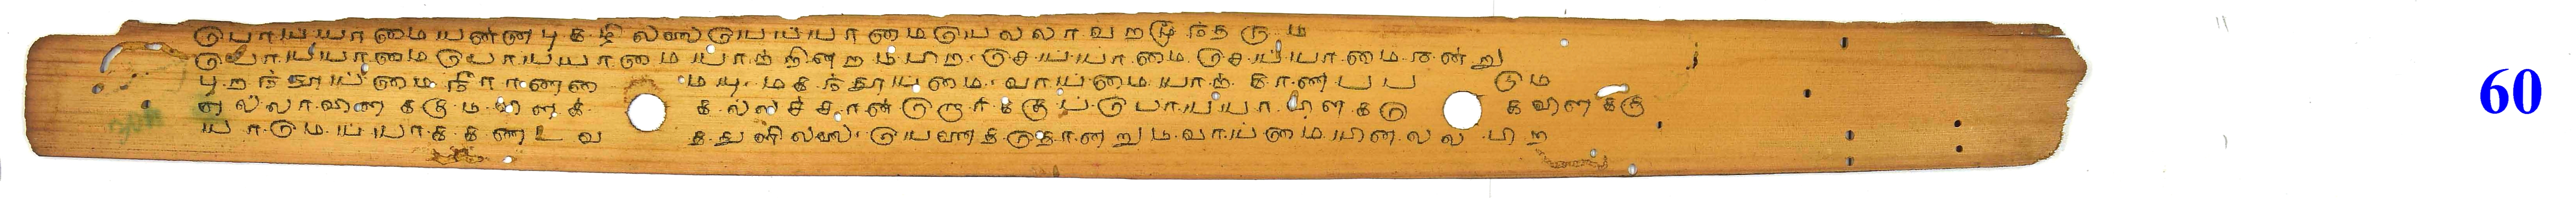 பொய்யாமையன்னபுகழில்லையெய்யாமையெல்லாவறமுந்தரும்
பொய்யாமைபொய்யாமையாற்றினறம்பிறசெய்யாமைசெய்யாமைநன்று
புறந்தூய்மைநீரானமையுமகந்தூய்மைவாய்மையாற்காணப்படும்
எல்லாவிளக்கும்விளக்கல்லச்சான்றோர்க்குப்பொய்யாவிளக்கேவிளக்கு
யாமெய்யாக்கண்டவத்துளில்லையெனைத்தொன்றும்வாய்மையினல்லபிற
60